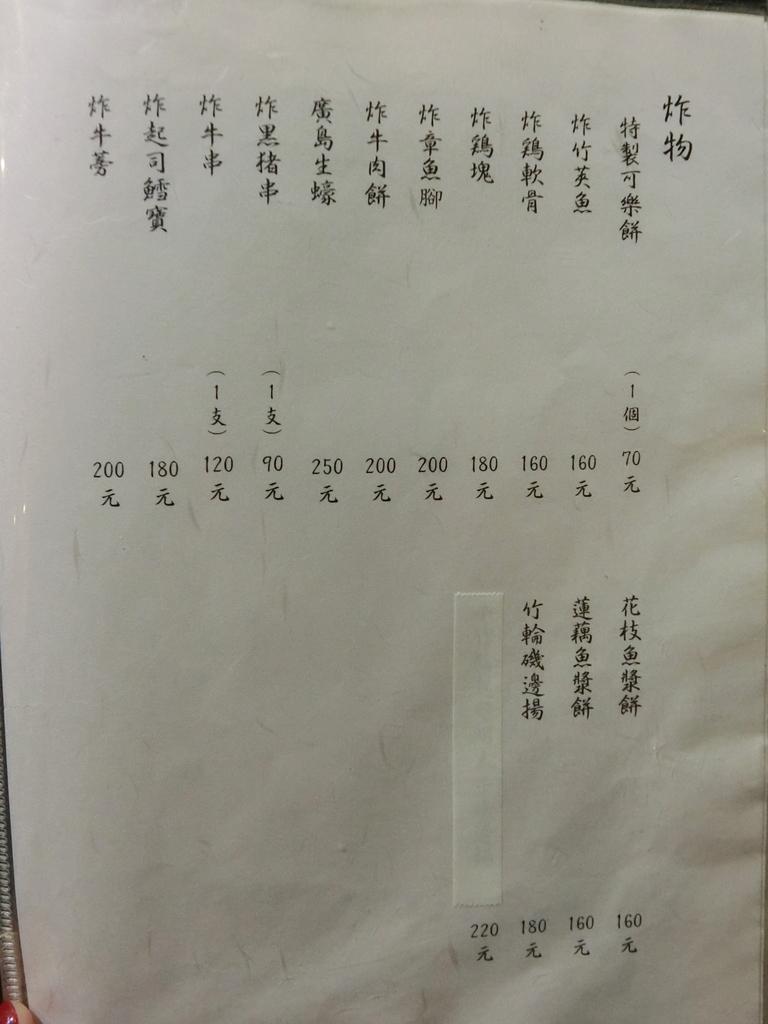 炸物
特製可樂餅 （1個） 70元
炸竹英魚 160元
炸鶏軟骨 160元
炸鶏塊 180元
炸章魚腳 200元
炸牛肉餅 200元
廣島生蠔 250元
炸黑猪串 （1支） 90元
炸牛串 （1支） 120元
炸起司鱈寶 180元
炸牛蒡 200元
花枝魚漿餅 160元
蓮藕魚漿餅 160元
竹輪磯邊揚 180元
220元